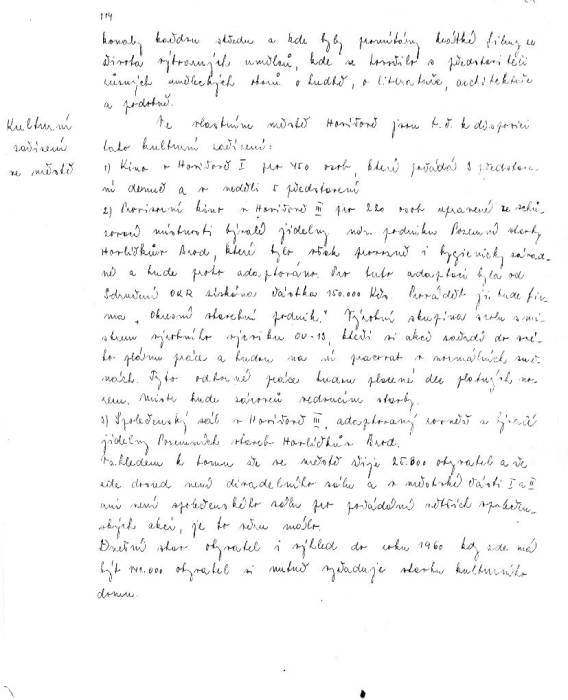 114
konaly každou středu a kde byly promítány krátké filmy ze
života výtvarných umělců, kde se hovořilo s představiteli
různých uměleckých oborů o hudbě, o literatuře, architektuře
a podobně.
Kulturní
zařízení
ve městě
Ve vlastním městě Havířově jsou t.č. k disposici
tato kulturní zařízení:
1) Kino v Havířově I pro 450 osob, které pořádá 3 představe-
ní denně a v neděli 5 představení
2) Provisorní kino v Havířově III pro 220 osob upravené ze schů-
zovací místnosti bývalé jídelny nár. podniku Pozemní stavby
Havlíčkův Brod, které bylo však provozně i hygienicky závad-
né a bude proto adaptováno. Pro tuto adaptaci byla od
Sdružení OKR získána částka 150.000 Kčs. Provádět ji bude fir-
ma "Okresní stavební podnik." Výrobní skupina spolu s mi-
strem výrobního úseku OV-13, kteří si akci zařadí do své-
ho plánu práce a budou na ní pracovat v normálních smě-
nách. Tyto odborné práce budou placené dle platných no-
rem. Mistr bude zároveň vedoucím stavby.
3) Společenský sál v Havířově III, adaptovaný rovněž z bývalé
jídelny Pozemních staveb Havlíčkův Brod.
Vzhledem k tomu že ve městě žije 25.800 obyvatel a že
zde dosud není divadelního sálu a v městské části I a II
ani není společenského sálu pro pořádání větších společen-
ských akcí, je to velmi málo.
Dnešní stav obyvatel i výhled do roku 1960 kdy zde má
být obyvatel si nutně vyžaduje stavbu kulturního
domu.